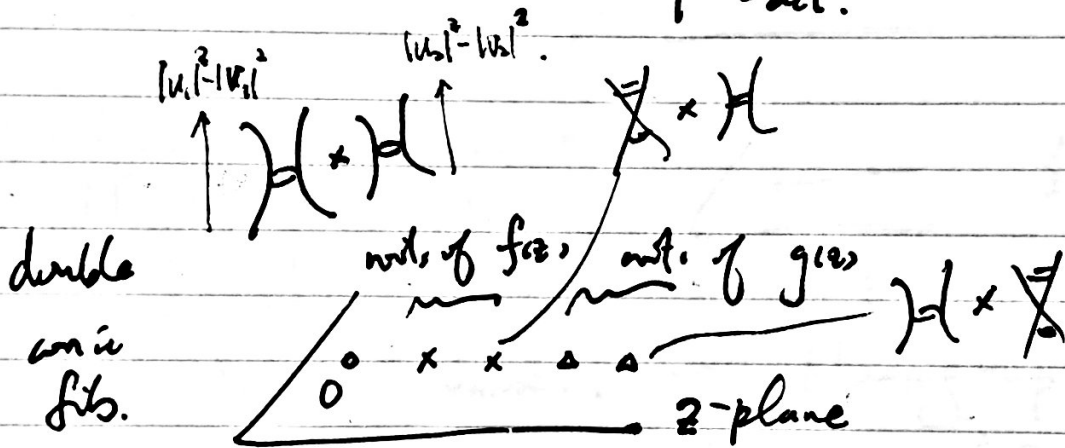 act.
|u₁|²-|v₁|²
|u₂|²-|v₂|².
× 
×
double
conic
fibs.
roots of f(z)
roots of g(z)
×
0
z-plane